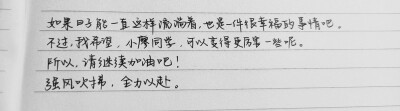 如果日子能一直这样流淌着,也是一件很幸福的事情吧。
不过,我希望,小廖同学,可以变得更厉害一些呢。
所以,请继续加油吧!
强风吹拂,全力以赴。